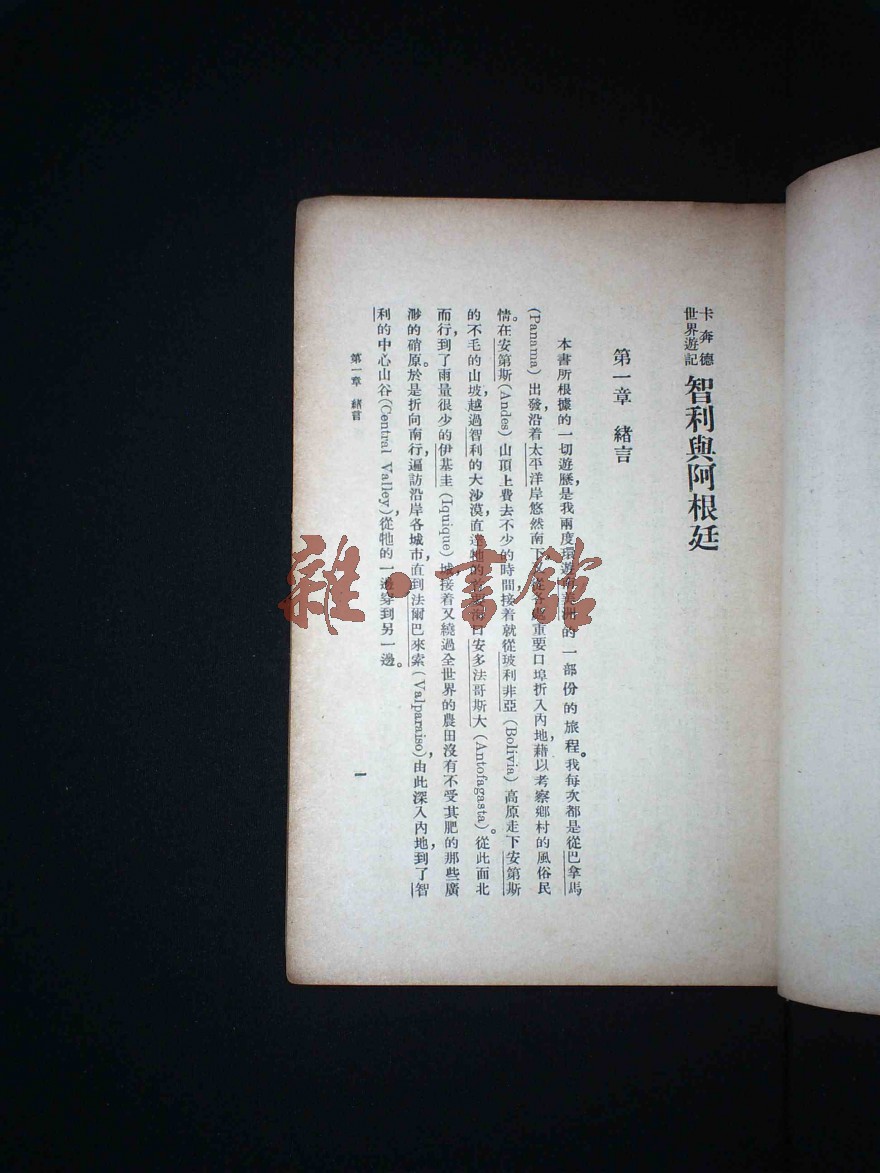 卡奔德
世界遊記
智利與阿根廷
第一章 緒言
本書所根據的一切遊歷,是我兩度環遊南美洲的一部份的旅程。我每次都是從巴拿馬
(Panama)出發,沿着太平洋岸悠然南下,又從各處重要口埠折入內地,藉以考察鄉村的風俗民
情。在安第斯(Andes)山頂上費去不少的時間,接着就從玻利非亞(Bolivia)高原走下安第斯
的不毛的山坡,越過智利的大沙漠,直達牠的海口安多法哥斯大(Antofagasta)。從此面北
而行,到了雨量很少的伊基圭(Iquique)城,接着又繞過全世界的農田沒有不受其肥的那些廣
渺的硝原。於是折向南行,遍訪沿岸各城市,直到法爾巴來索(Valparaiso),由此深入內地,到了智
利的中心山谷(Central Valley),從牠的一邊穿到另一邊。
第一章 緒言
一
雜·書館